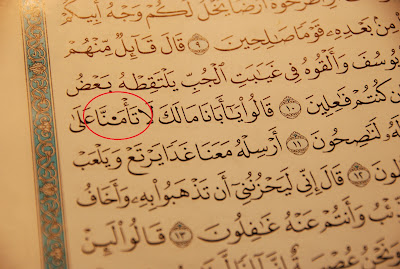 ٱطْرَحُوهُ أَرْضًا يَخْلُ لَكُمْ وَجْهُ أَبِيكُمْ
مِنۢ بَعْدِهِۦ قَوْمًا صَٰلِحِينَ ٩ قَالَ قَآئِلٌ مِّنْهُمْ
يُوسُفَ وَأَلْقُوهُ فِى غَيَٰبَتِ ٱلْجُبِّ يَلْتَقِطْهُ بَعْضُ
كُنتُمْ فَٰعِلِينَ ١٠ قَالُوا۟ يَٰٓأَبَانَا مَالَكَ لَا تَأْمَ۫نَّا عَلَىٰ
لَهُۥ لَنَٰصِحُونَ ١١ أَرْسِلْهُ مَعَنَا غَدًا يَرْتَعْ وَيَلْعَبْ
١٢ قَالَ إِنِّى لَيَحْزُنُنِىٓ أَن تَذْهَبُوا۟ بِهِۦ وَأَخَافُ
وَأَنتُمْ عَنْهُ غَٰفِلُونَ ١٣ قَالُوا۟ لَئِنْ
وَنَحْنُ عُصْبَةٌ إِنَّآ إِذًا